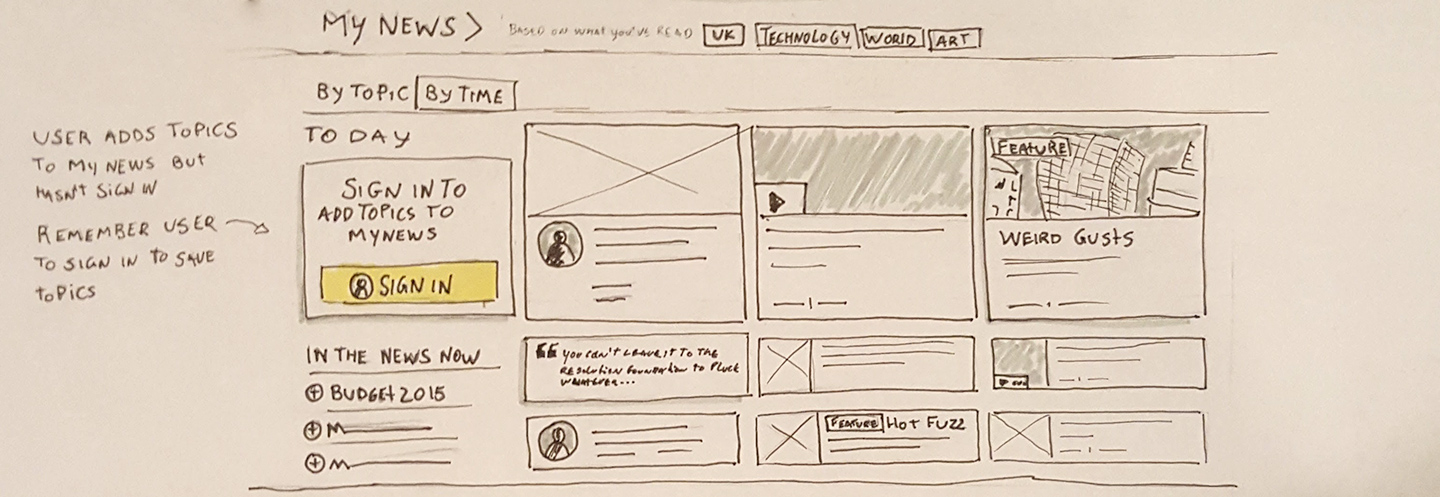 MY NEWS >
BASED ON WHAT YOU'VE READ
UK
TECHNOLOGY
WORLD
ART
BY TOPIC
BY TIME
USER ADDS TOPICS
TO MY NEWS BUT
HASN'T SIGN IN
REMEMBER USER
TO SIGN IN TO SAVE
TOPICS
TODAY
SIGN IN TO
ADD TOPICS TO
MYNEWS
SIGN IN
FEATURE
WEIRD GUSTS
IN THE NEWS NOW
BUDGET 2015
M
M
“ YOU CAN'T LEAVE IT TO THE
RESOLUTION FOUNDATION TO PLUCK
WHATEVER...
FEATURE HOT FUZZ